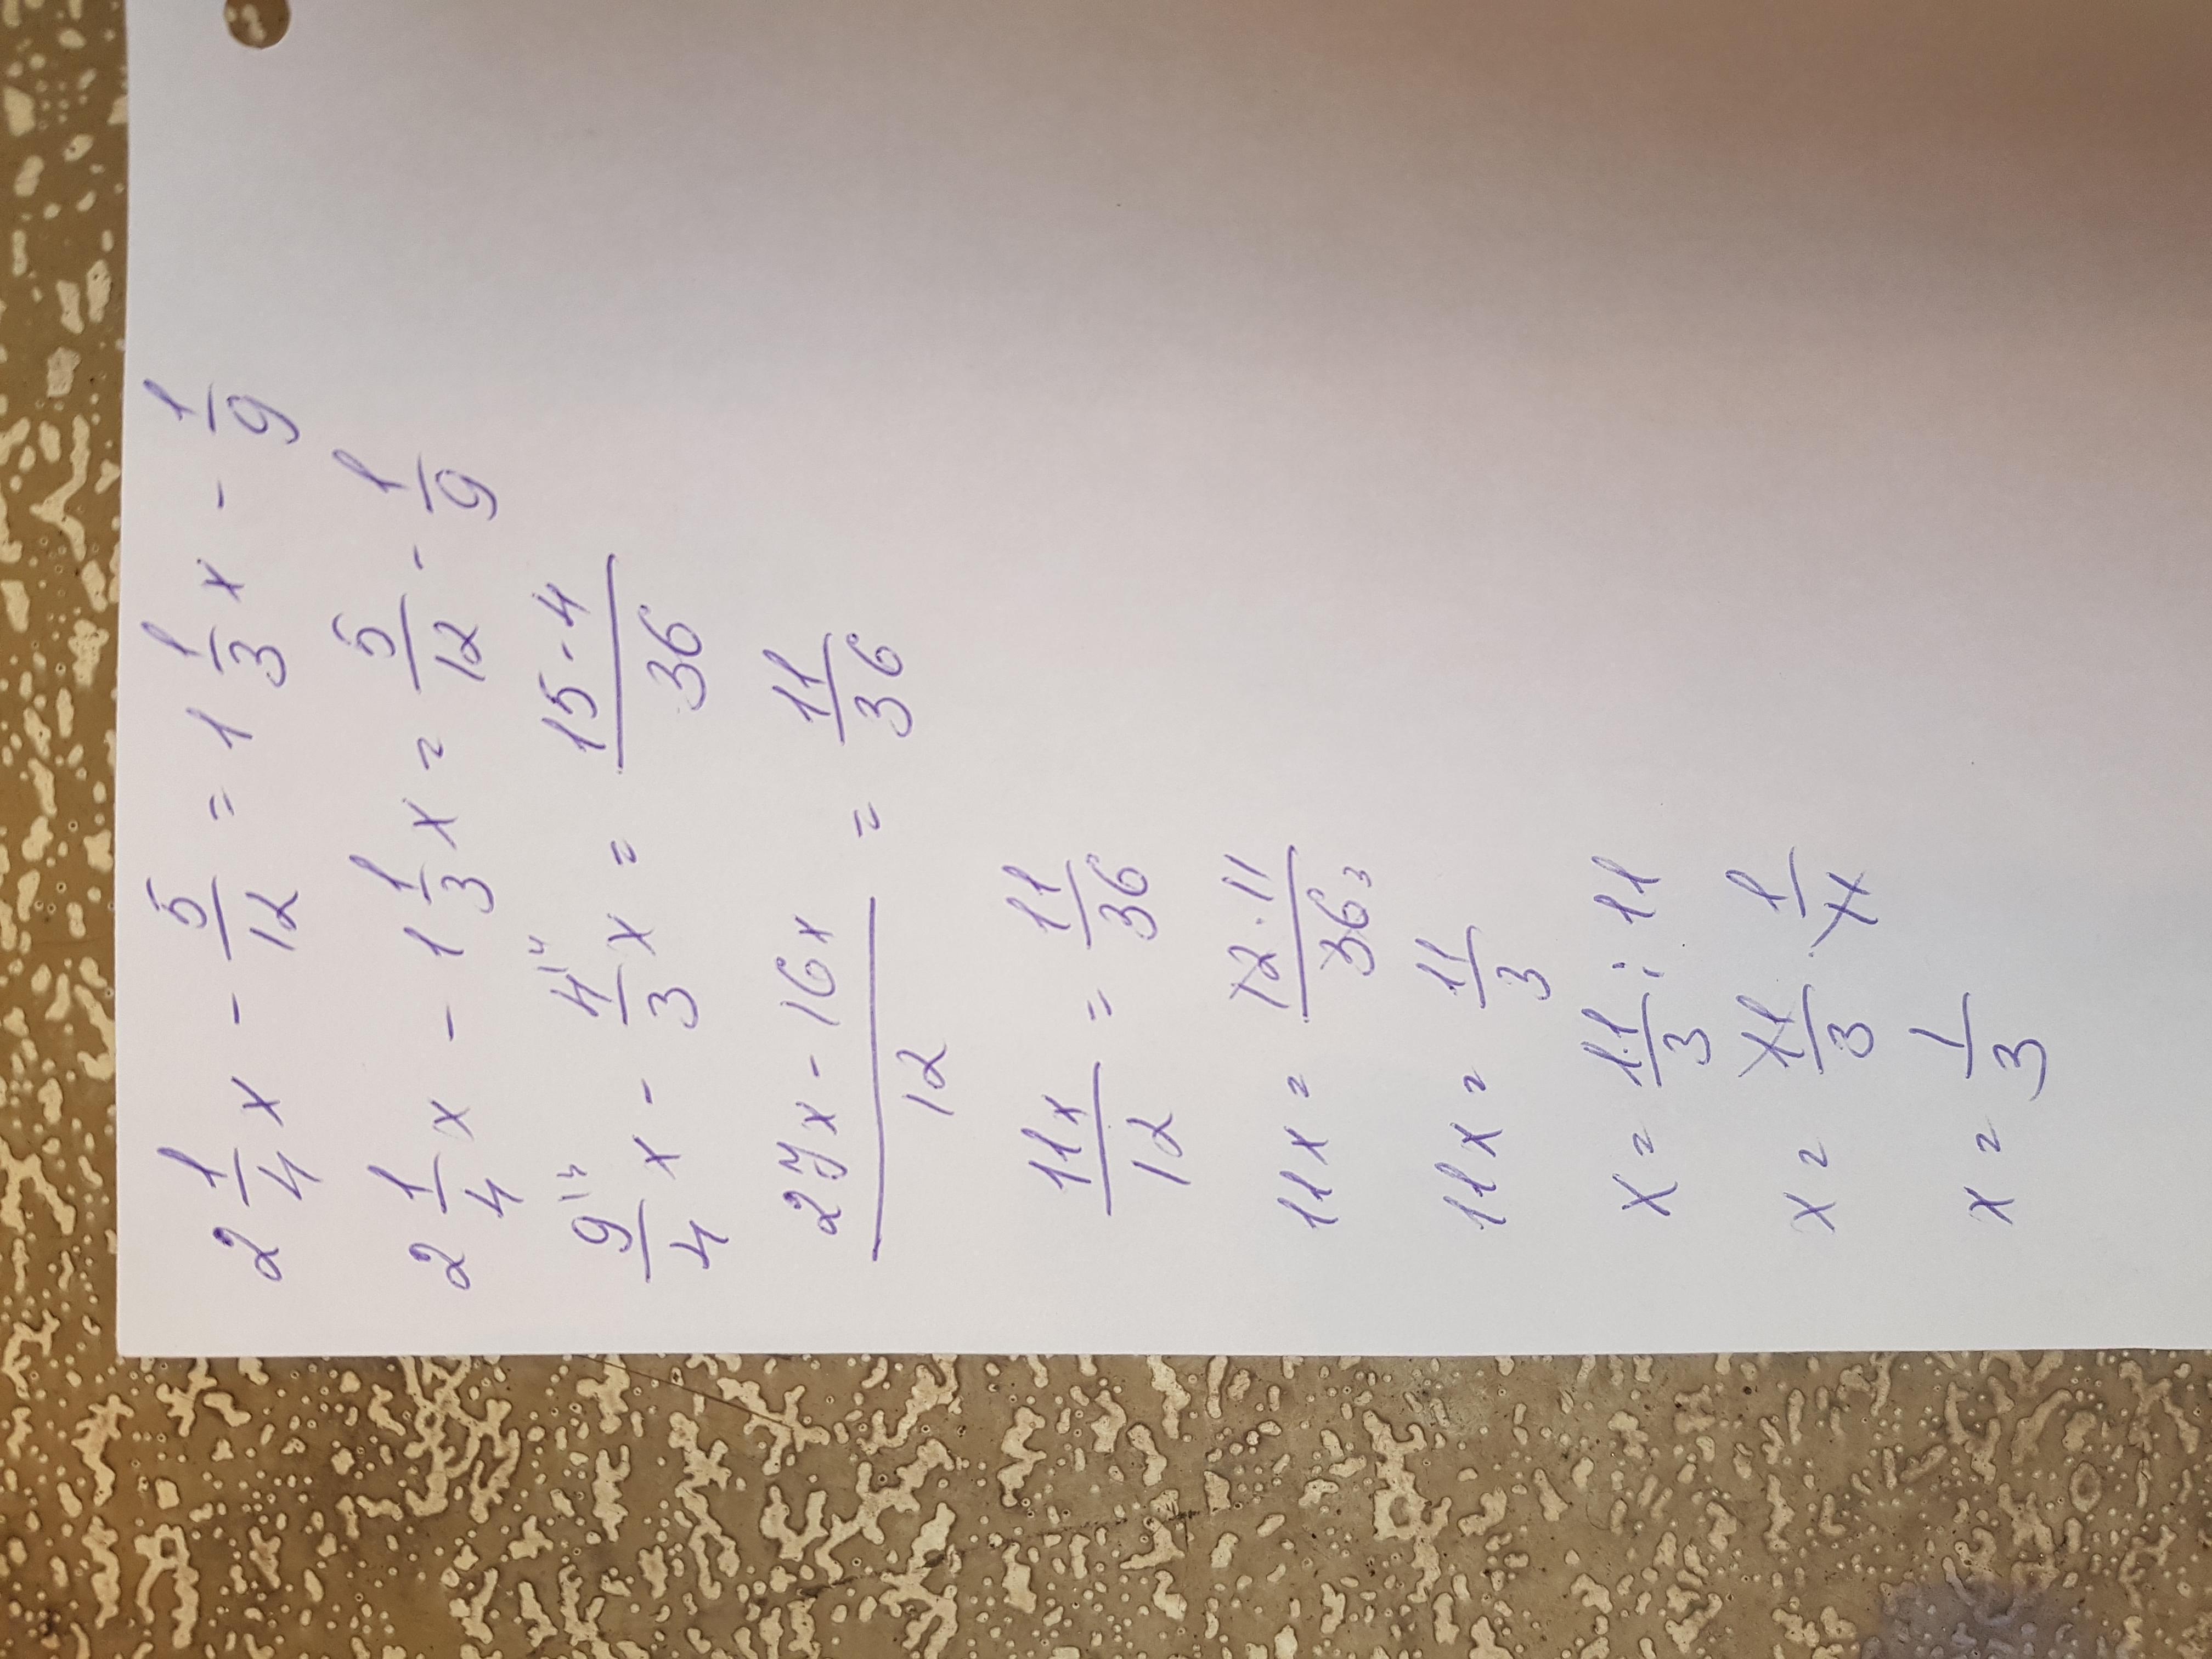 2 1/4 x - 5/12 = 1 1/3 x - 1/9
2 1/4 x - 1 1/3 x = 5/12 - 1/9
9/4 x - 4/3 x = (15 - 4)/36
(27x - 16x)/12 = 11/36
11x/12 = 11/36
11x = (12 · 11)/36 3
11x = 11/3
x = 11/3 : 11
x = 11/3 · 1/11
x = 1/3